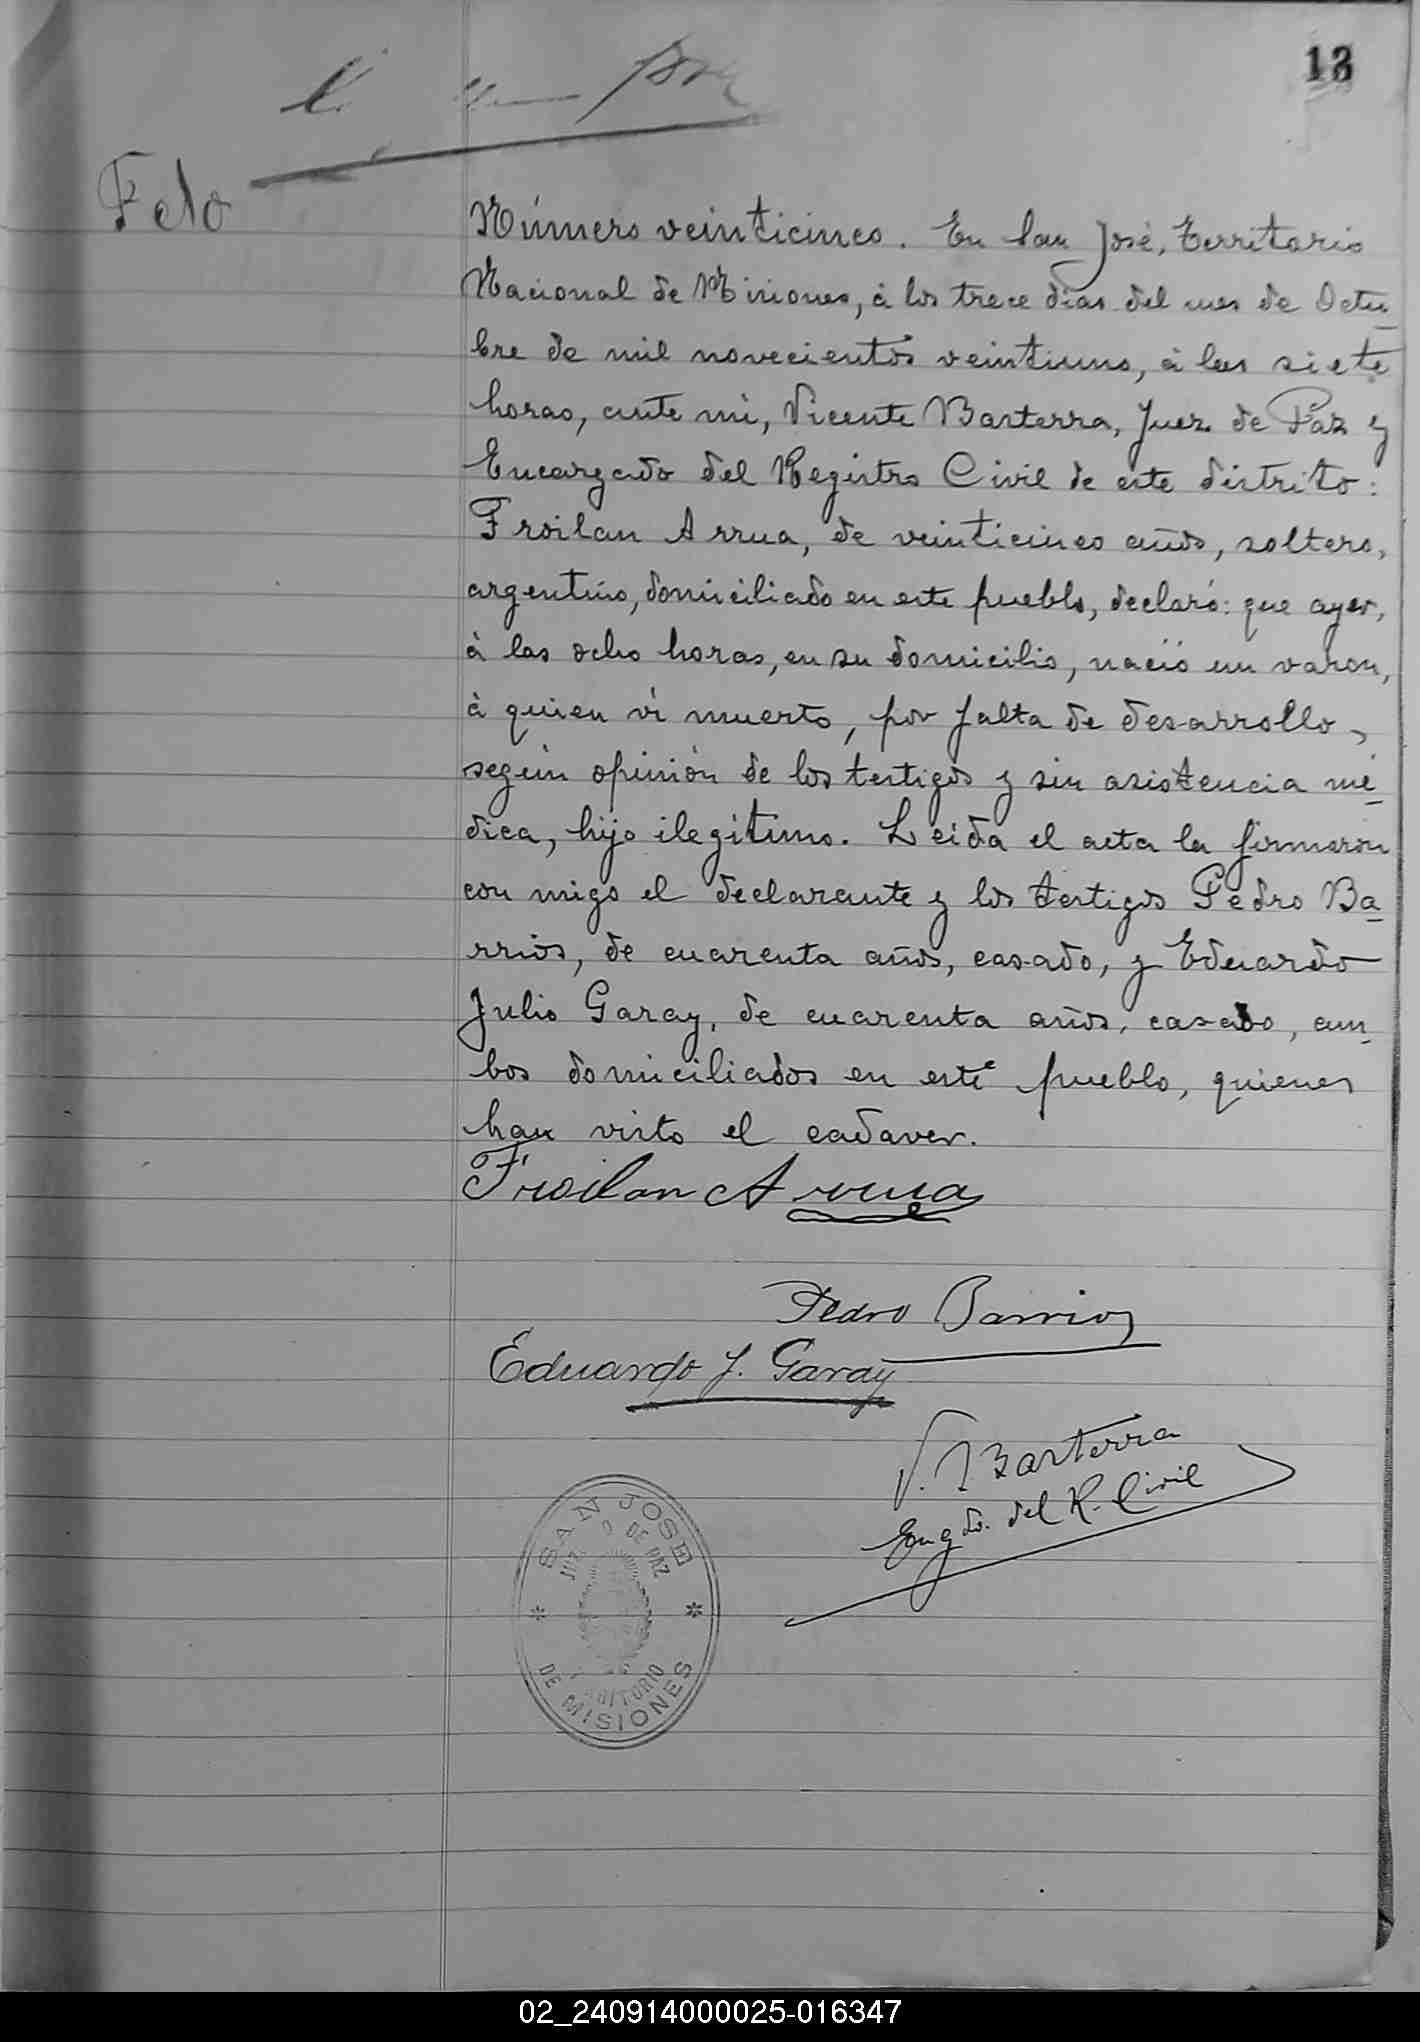 13
Feto
Número veinticinco. En San José, Territorio
Nacional de Misiones, á los trece dias del mes de Octu-
bre de mil novecientos veintiuno, á las siete
horas, ante mi, Vicente Basterra, Juez de Paz y
Encargado del Registro Civil de este distrito:
Froilan Arrua, de veinticinco años, soltero,
argentino, domiciliado en este pueblo, declaró: que ayer,
á las ocho horas, en su domicilio, nació un varon,
á quien ví muerto, por falta de desarrollo,
según opinión de los testigos y sin asistencia mé-
dica, hijo ilegítimo. Leida el acta la firmaron
con migo el declarante y los testigos Pedro Ba-
rrios, de cuarenta años, casado, y Eduardo
Julio Garay, de cuarenta años, casado, am-
bos domiciliados en este pueblo, quienes
han visto el cadaver.
Froilan Arrua
Pedro Barrios
Eduardo J. Garay
V. Basterra
Engdo. del R. Civil
SAN JOSE
DE PAZ
TERRITORIO
DE MISIONES
02_240914000025-016347